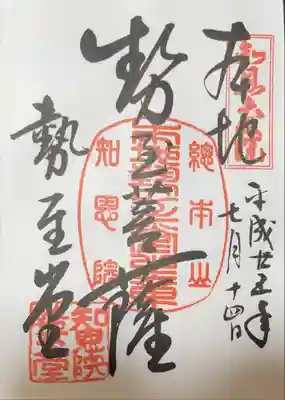 本地
勢至菩薩
勢至堂
平成廿五年
七月十四日
總本山
知恩院
知恩院
勢至堂